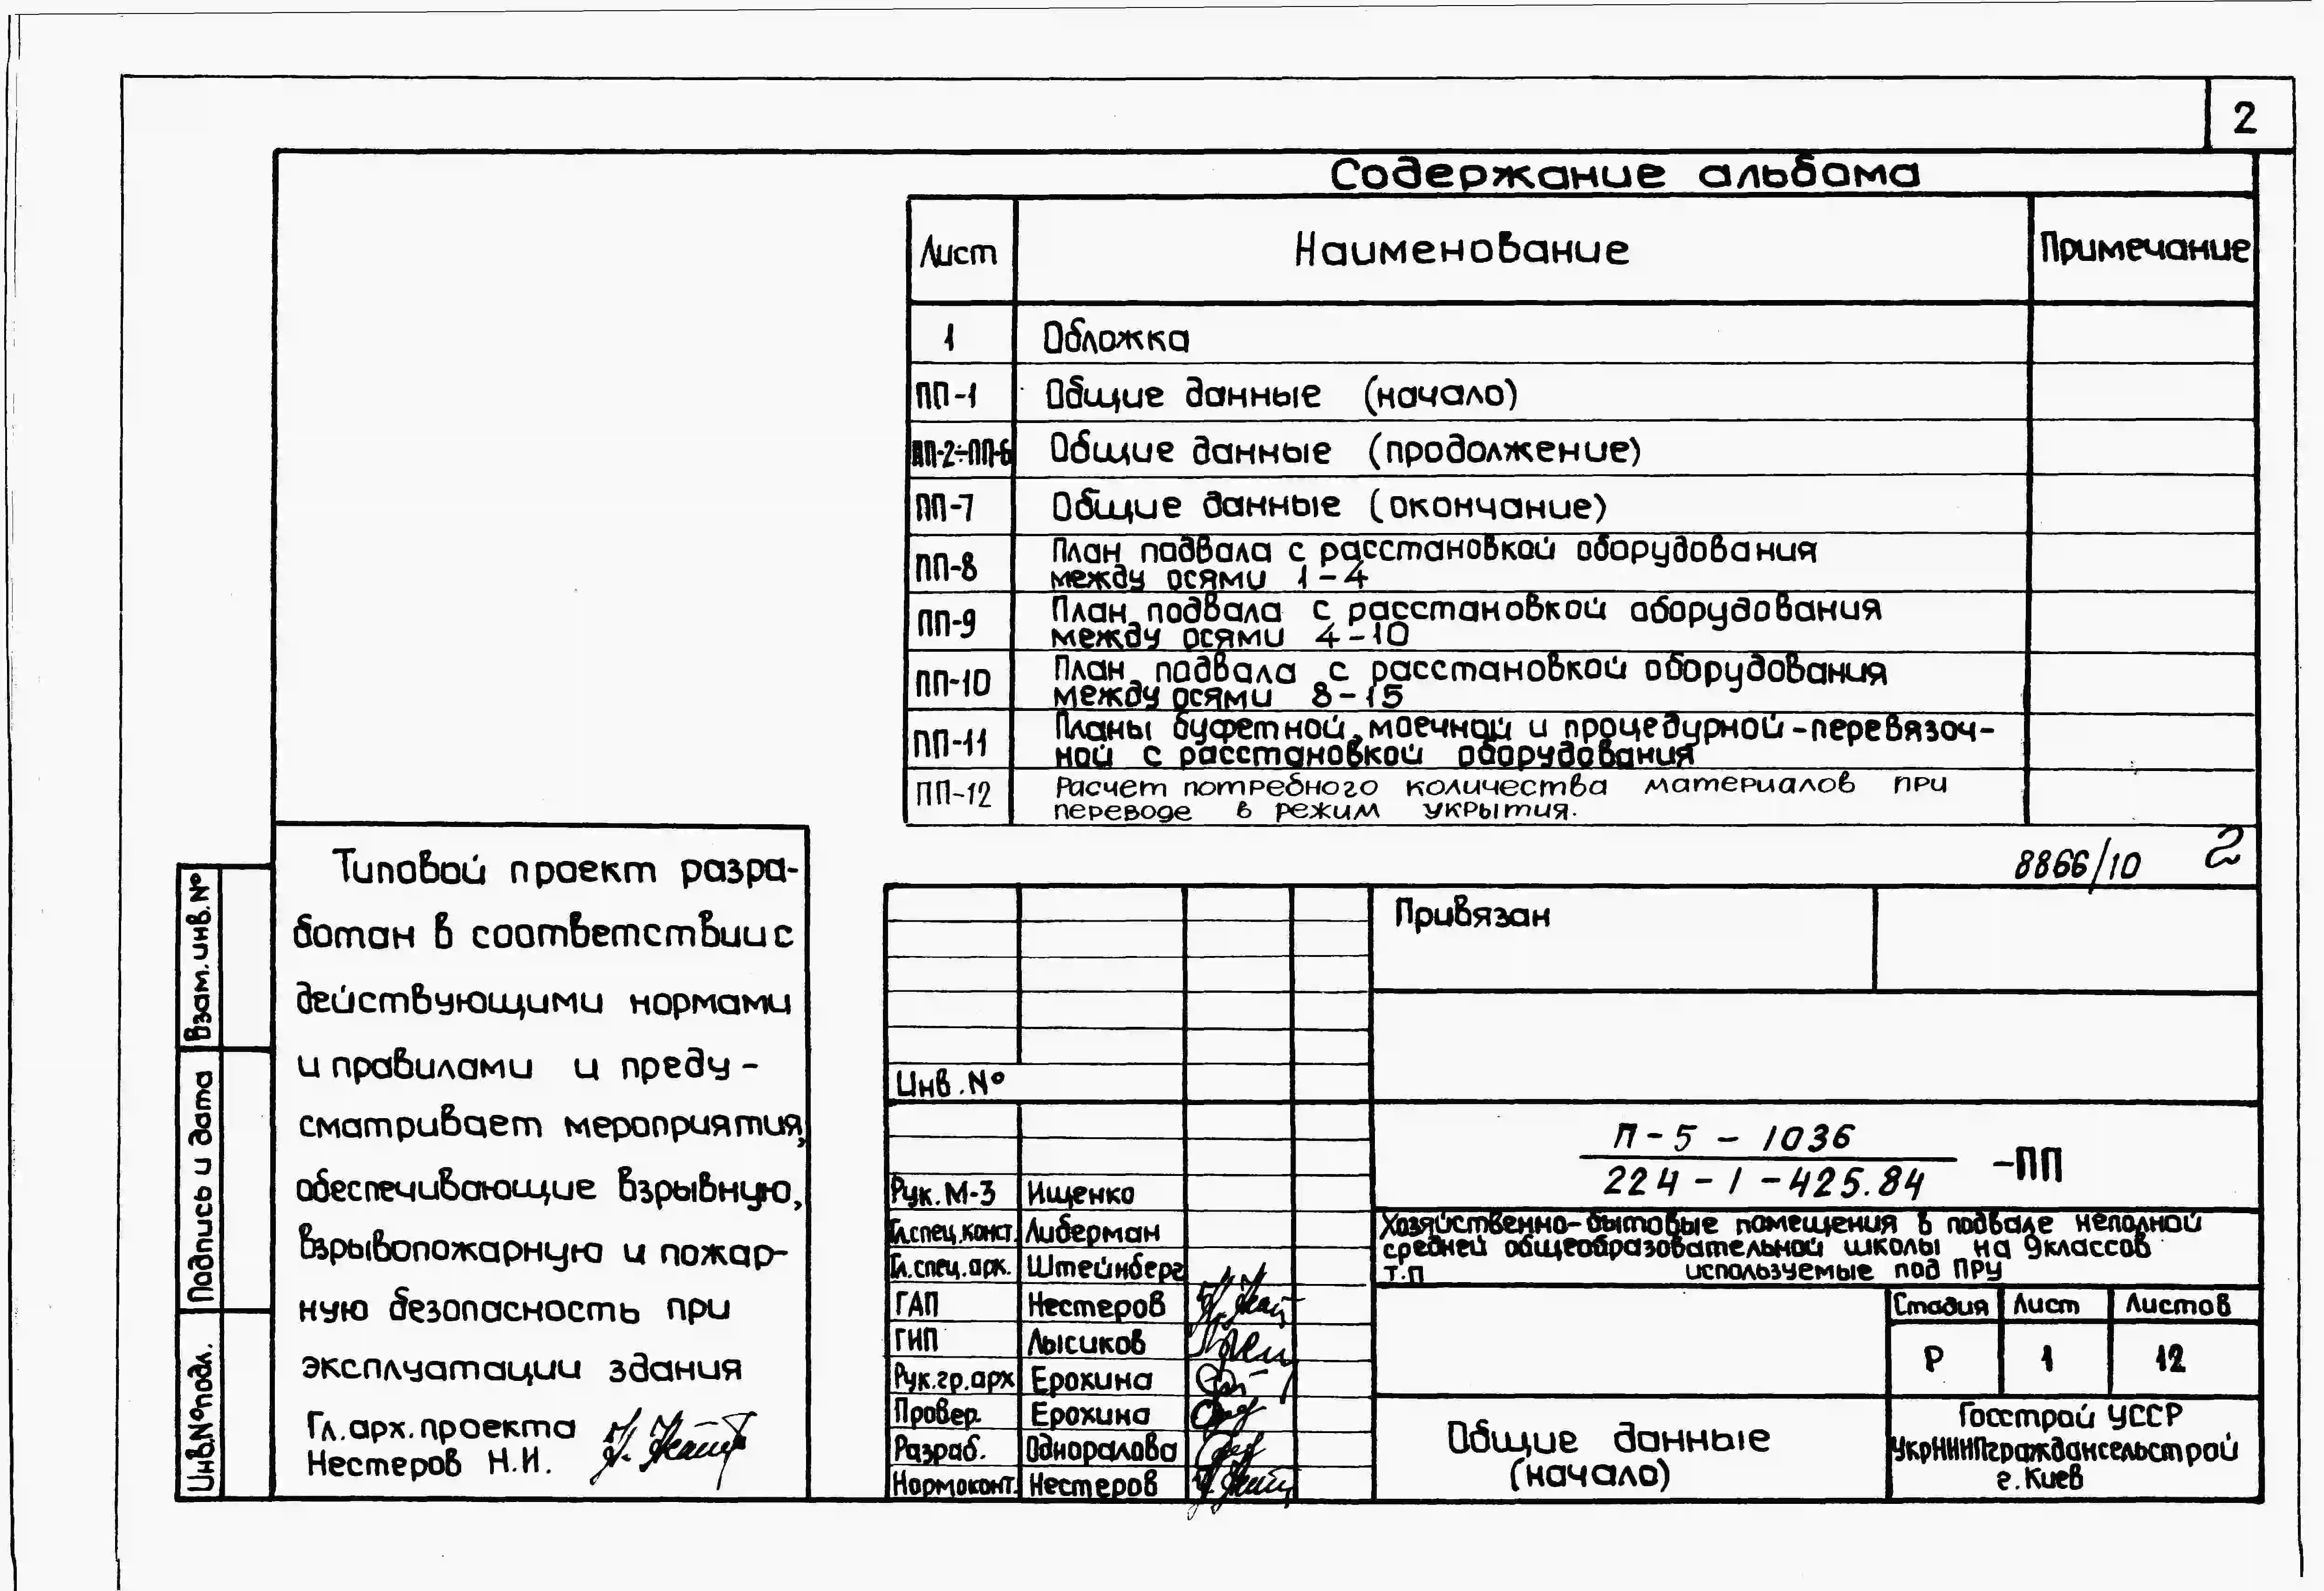 2
Содержание альбома
Лист Наименование Примечание
1 Обложка
ПП-1 Общие данные (начало)
ПП-2÷ПП-6 Общие данные (продолжение)
ПП-7 Общие данные (окончание)
ПП-8 План подвала с расстановкой оборудования
между осями 1-4
ПП-9 План подвала с расстановкой оборудования
между осями 4-10
ПП-10 План подвала с расстановкой оборудования
между осями 8-15
ПП-11 Планы буфетной, моечной и процедурной-перевязоч-
ной с расстановкой оборудования
ПП-12 Расчет потребного количества материалов при
переводе в режим укрытия.
8866/10 2
Типовой проект разра-
ботан в соответствии с
действующими нормами
и правилами и преду-
сматривает мероприятия,
обеспечивающие взрывную,
взрывопожарную и пожар-
ную безопасность при
эксплуатации здания
Гл. арх. проекта
Нестеров Н.И.
Взам. инв. №
Подпись и дата
Инв. № подл.
Привязан
Инв. №
П-5-1036
224-1-425.84
-ПП
Рук. М-3 Ищенко
Гл.спец.конст. Либерман
Гл.спец.арк. Штейнберг
ГАП Нестеров
ГИП Лысиков
Рук.гр.арх Ерохина
Провер. Ерохина
Разраб. Одноралова
Нормоконт. Нестеров
Хозяйственно-бытовые помещения в подвале неполной
средней общеобразовательной школы на 9 классов
т.п используемые под ПРУ
Стадия Лист Листов
Р 1 12
Общие данные
(начало)
Госстрой УССР
УкрНИИПграждансельстрой
г. Киев